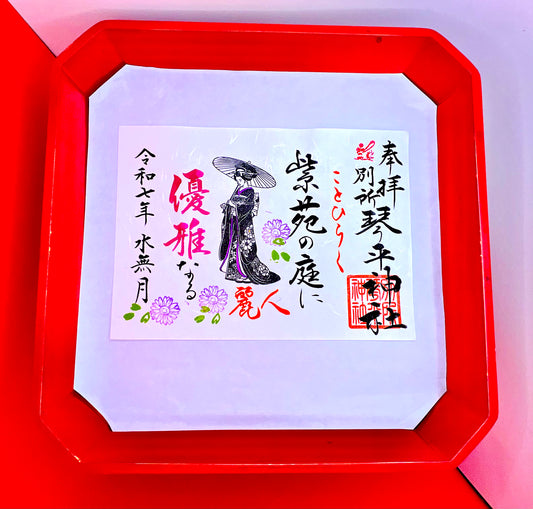 奉拝
別所琴平神社
ことひらく
紫苑の庭に
麗人
優雅なる
令和七年 水無月